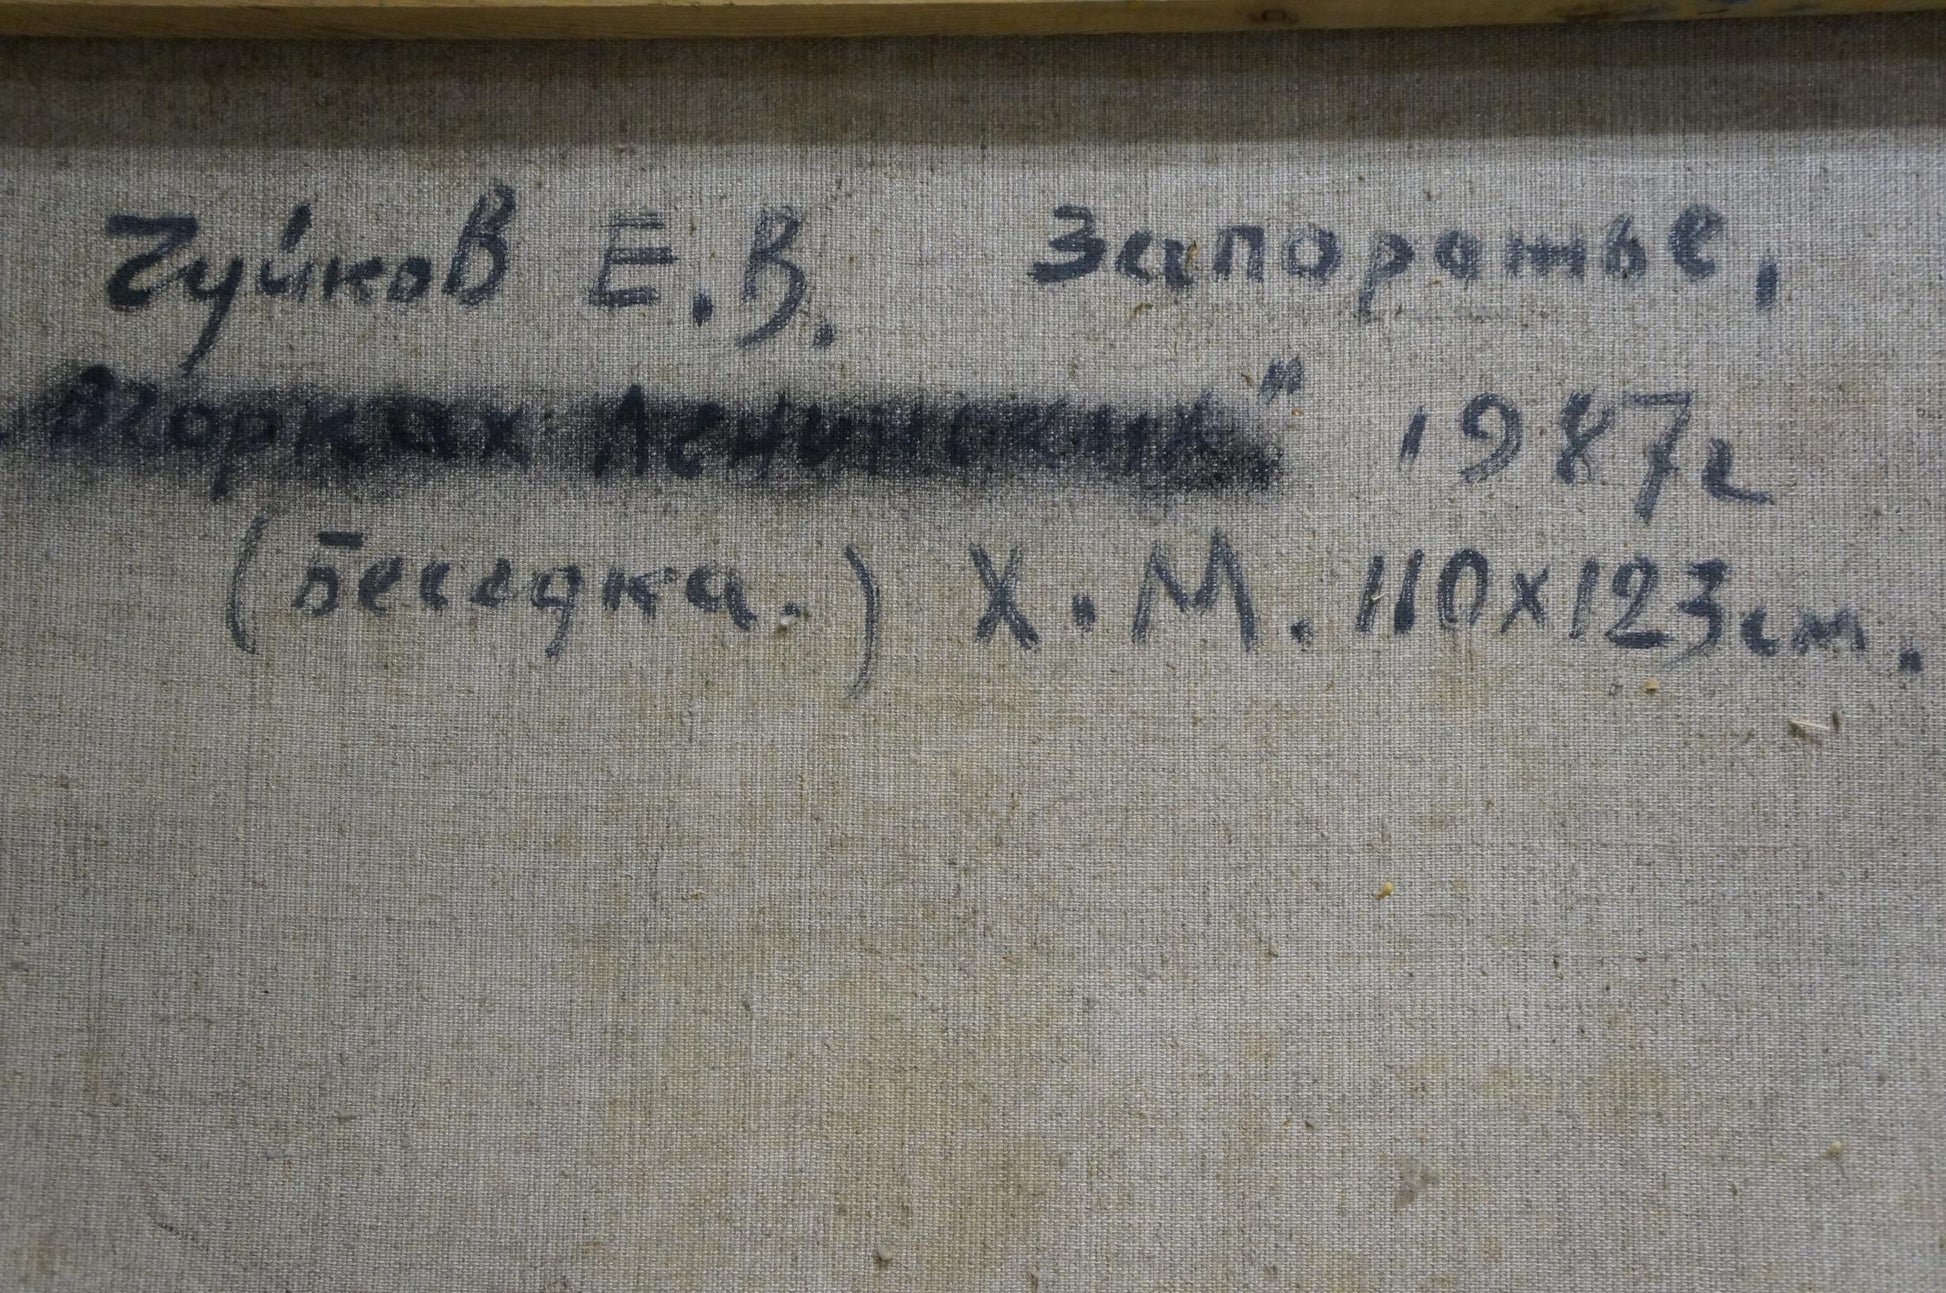 Чуйков Е.В. Запорожье,
„В Горках Ленинских" 1987г
(Беседка.) Х.М. 110х123см.